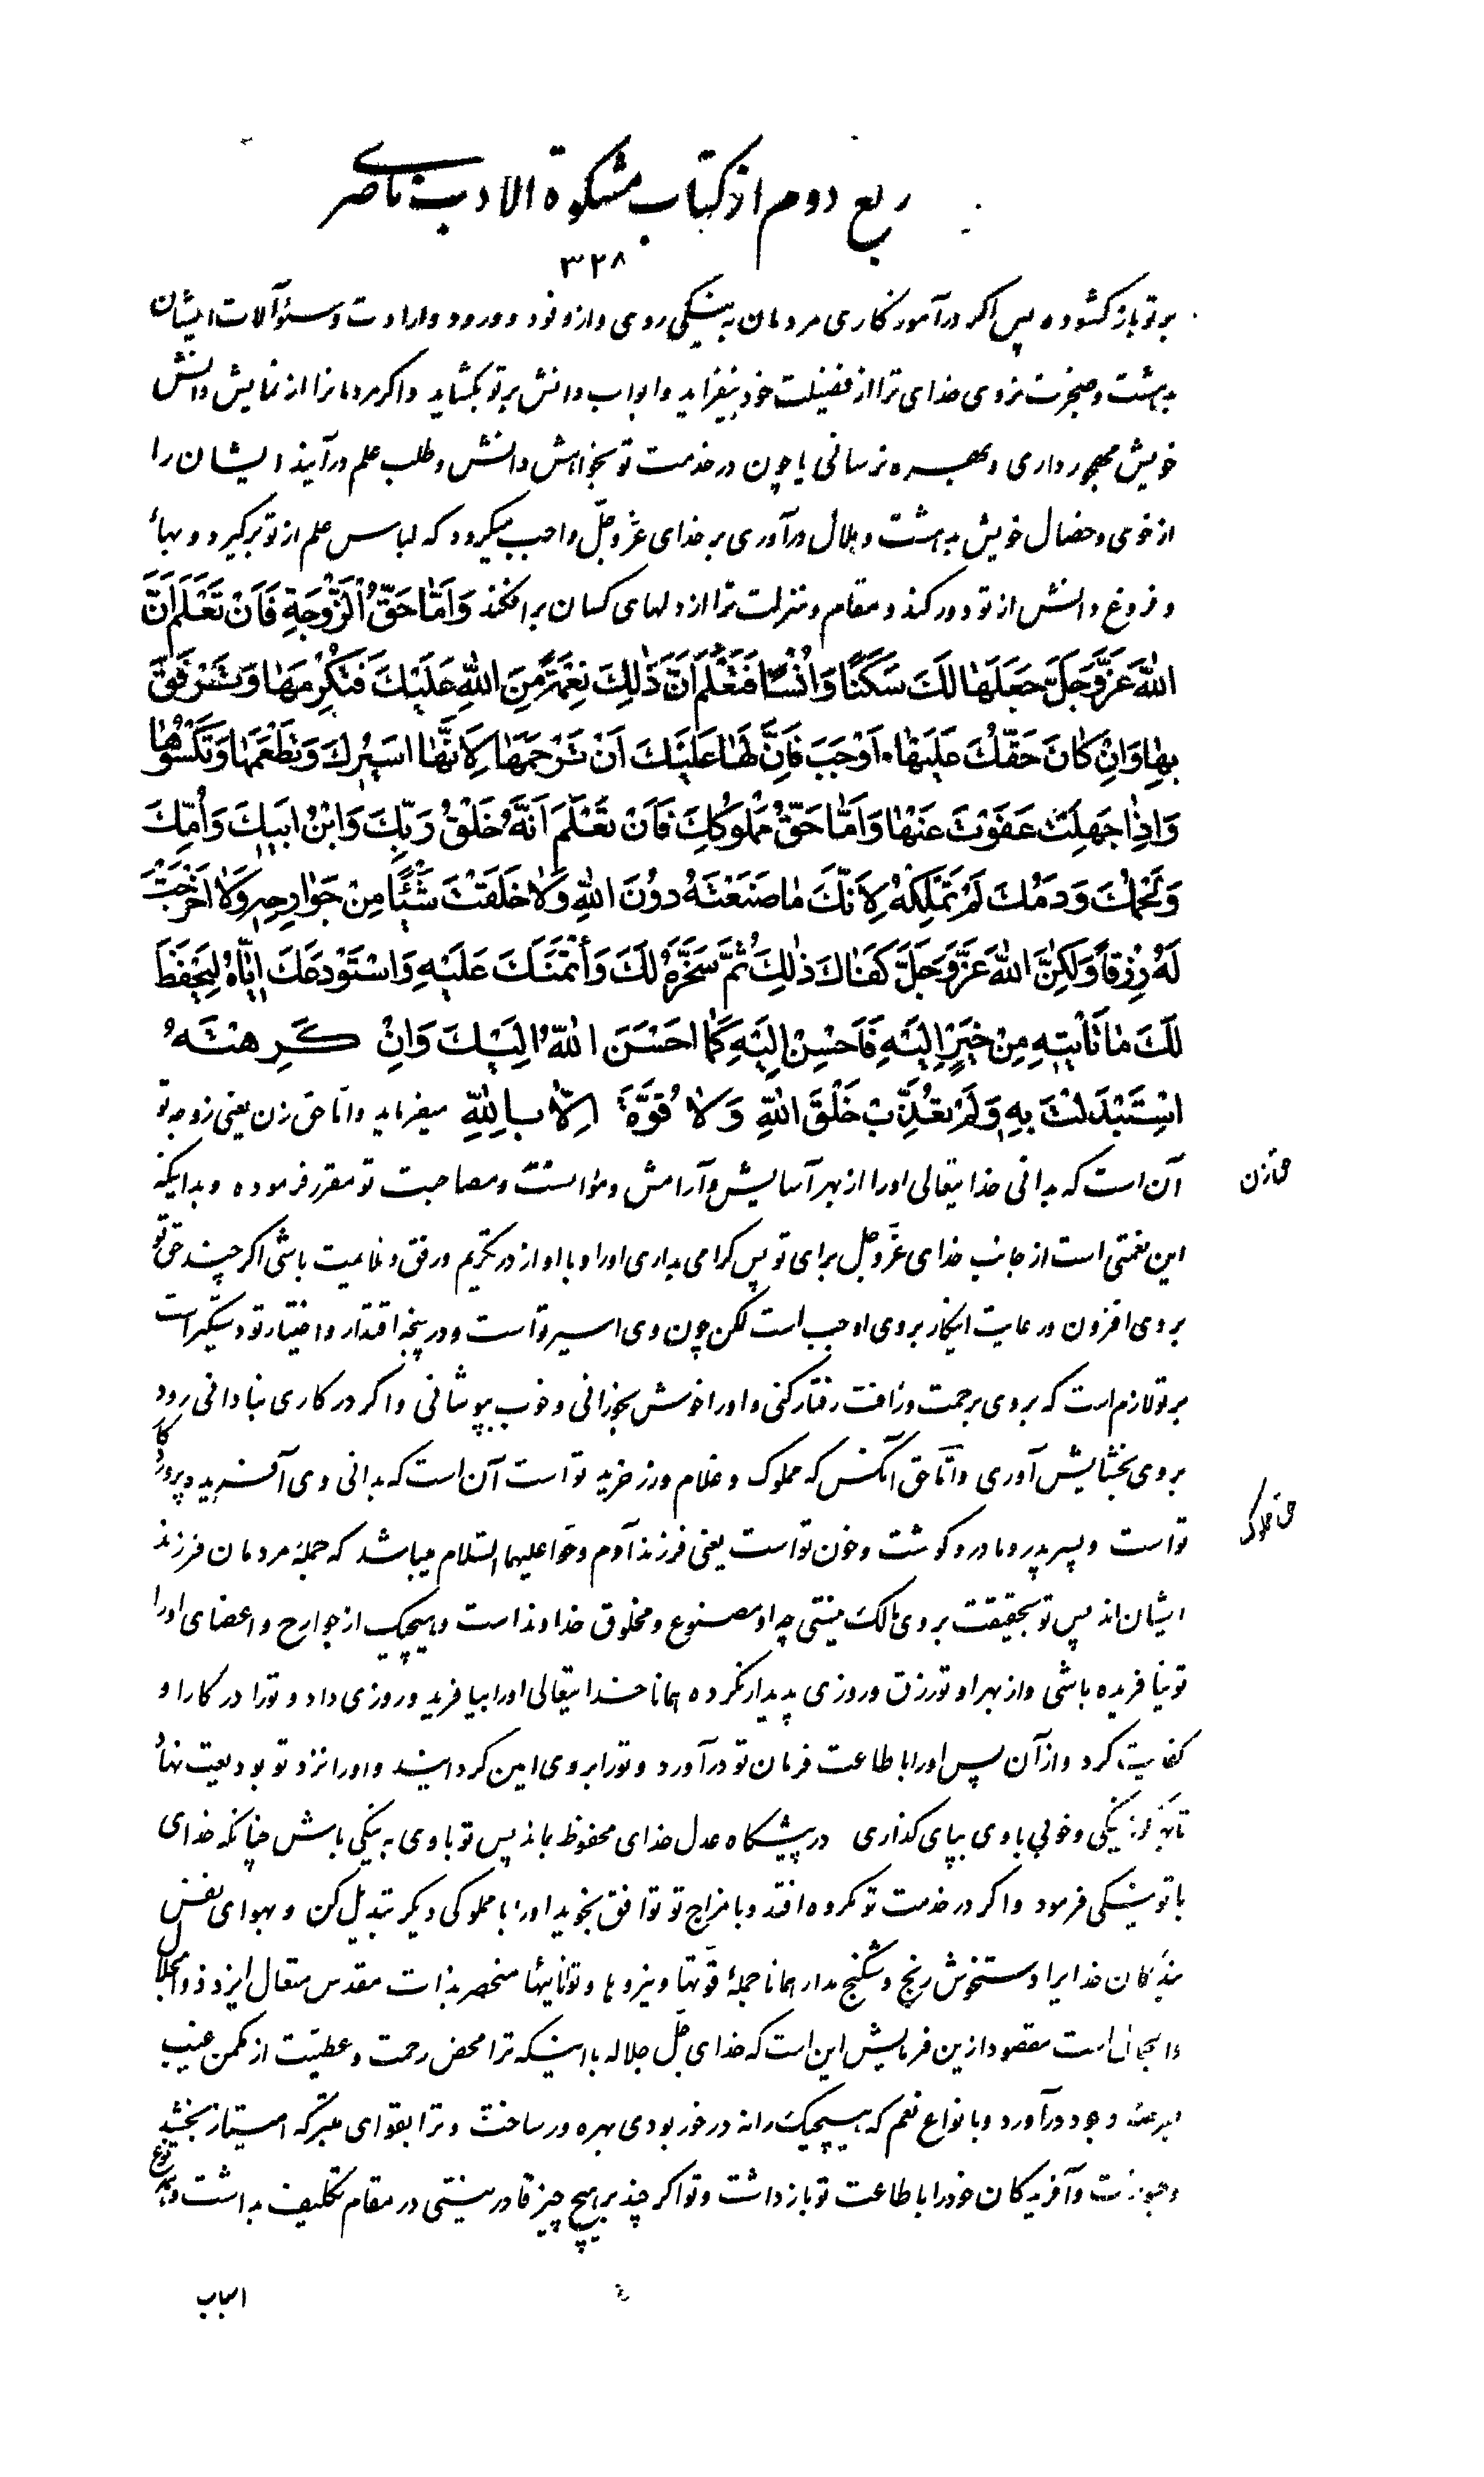 ربع دوم از کتاب مشکوة الادب ناصری
۳۲۸
بر تو باز کشوده پس اگر در آموزگاری مردمان به نیکی روی و از وفود و ورود و ارادت و سئوآلات ایشان
بدهشت و ضجرت نروی خدای ترا از فضیلت خود بیفزاید و ابواب دانش بر تو بگشاید و اگر مردمانرا از نمایش دانش
خویش مهجور داری و بهره نرسانی یا چون در خدمت تو بخواهش دانش و طلب علم درآیند ایشان را
از خوی و خصال خویش بدهشت و ملال درآوری بر خدای عزّ و جلّ واجب میگردد که لباس علم از تو برگیرد و بهاء
و فروغ دانش از تو دور کند و مقام و منزلت ترا از دلهای کسان برافکند وَاَمّٰا حَقُّ الزَّوْجَةِ فَاَنْ تَعْلَمَ اَنَّ
اللّٰهَ عَزَّ وَجَلَّ جَعَلَهٰا لَكَ سَكَنًا وَاُنْسًا فَتَعْلَمَ اَنَّ ذٰلِكَ نِعْمَةٌ مِنَ اللّٰهِ عَلَيْكَ فَتُكْرِمَهٰا وَتَرْفَقَ
بِهٰا وَاِنْ كٰانَ حَقُّكَ عَلَيْهٰا اَوْجَبَ فَاِنَّ لَهٰا عَلَيْكَ اَنْ تَرْحَمَهٰا لِاَنَّهٰا اَسيرُكَ وَتُطْعِمَهٰا وَتَكْسُوَهٰا
وَاِذٰا جَهِلَتْ عَفَوْتَ عَنْهٰا وَاَمّٰا حَقُّ مَمْلُوكِكَ فَاَنْ تَعْلَمَ اَنَّهُ خَلْقُ رَبِّكَ وَابْنُ اَبيكَ وَاُمِّكَ
وَلَحْمُكَ وَدَمُكَ لَمْ تَمْلِكْهُ لِاَنَّكَ مٰا صَنَعْتَهُ دُونَ اللّٰهِ وَلٰا خَلَقْتَ شَيْئًا مِنْ جَوٰارِحِهِ وَلٰا اَخْرَجْتَ
لَهُ رِزْقاً وَلٰكِنَّ اللّٰهَ عَزَّ وَجَلَّ كَفٰاكَ ذٰلِكَ ثُمَّ سَخَّرَهُ لَكَ وَأْتَمَنَكَ عَلَيْهِ وَاسْتَوْدَعَكَ اِيّٰاهُ لِيَحْفَظَ
لَكَ مٰا تَأْتيهِ مِنْ خَيْرٍ اِلَيْهِ فَاَحْسِنْ اِلَيْهِ كَمٰا اَحْسَنَ اللّٰهُ اِلَيْكَ وَاِنْ كَرِهْتَهُ
اسْتَبْدَلْتَ بِهِ وَلَمْ تُعَذِّبْ خَلْقَ اللّٰهِ وَلٰا قُوَّةَ اِلّٰا بِاللّٰهِ میفرماید وامّا حق زن یعنی زوجه تو
حق زن
آن است که بدانی خدایتعالی اورا از بهر آسایش و آرامش و موانست و مصاحبت تو مقرر فرموده و بدانیکه
این نعمتی است از جانب خدای عزّ و جلّ برای تو پس گرامی بداری اورا و با او از در تکریم و رفق و ملایمت باشی اگر چند حق تو
بر وی افزون و رعایت اینکار بر وی اوجب است لکن چون وی اسیر تو است و در پنجه اقتدار و اختیار تو دستگیر است
بر تو لازم است که بر وی برحمت و رأفت رفتار کنی و اورا خوش بخورانی و خوب بپوشانی و اگر در کاری بنادانی رود
بر وی بخشایش آوری و امّا حق آنکس که مملوک و غلام و زرخرید تو است آن است که بدانی وی آفریده پروردگار
حق مملوک
تو است و پسر پدر و مادر و گوشت و خون تو است یعنی فرزند آدم و حوّا علیهما السّلام میباشد که جملۀ مردمان فرزند
ایشان اند پس تو بحقیقت بر وی مالک نیستی چه او مصنوع و مخلوق خداوند است و هیچیک از جوارح و اعضای اورا
تو نیافریده باشی و از بهر او تو رزق و روزی پدیدار نکرده همانا خدایتعالی اورا بیافرید و روزی داد و تورا در کار او
کفایت کرد و از آن پس اورا باطاعت فرمان تو درآورد و تورا بر وی امین گردانید و اورا نزد تو بودیعت نهاد
تا آنچه از نیکی و خوبی با وی بپای گذاری در پیشگاه عدل خدای محفوظ بماند پس تو با وی به نیکی باش چنانکه خدای
با تو نیکی فرمود و اگر در خدمت تو مکروه افتد و با مزاج تو توافق نجوید اورا با مملوکی دیگر تبدیل کن و بهوای نفس
بندگان خدایرا دستخوش رنج و شکنج مدار همانا جملۀ قوّتها و نیروها و توانائیها منحصر بذات مقدس متعال ایزد ذو الجلال
والجمال است مقصود ازین فرمایش این است که خدای جلّ جلاله با اینکه ترا محض رحمت و عطیّت از مکمن غیب
بعرصۀ وجود درآورد و بانواع نعم که هیچیک را نه در خور بودی بهره ور ساخت و ترا بقوای متبرکه امتیاز بخشید
و آفریدگان خودرا باطاعت تو بازداشت و تو اگر چند بر هیچ چیز قادر نیستی در مقام تکلیف بداشت
اسباب